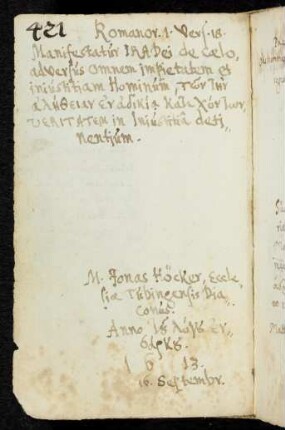 421
Romanor. 1. Vers. 18.
Manifestatur IRA Dei de cælo,
adversus omnem impietatem et
iniustitiam Hominum, τῶν τὴν
ἀλήθειαν ἐν ἀδικίᾳ κατεχόντων,
VERITATEM in Iniustitia deti„
nentium.
M. Jonas Höcker, Eccle„
siæ Tubingensis Dia„
conus.
Anno
1 6 13.
16. Septembr.